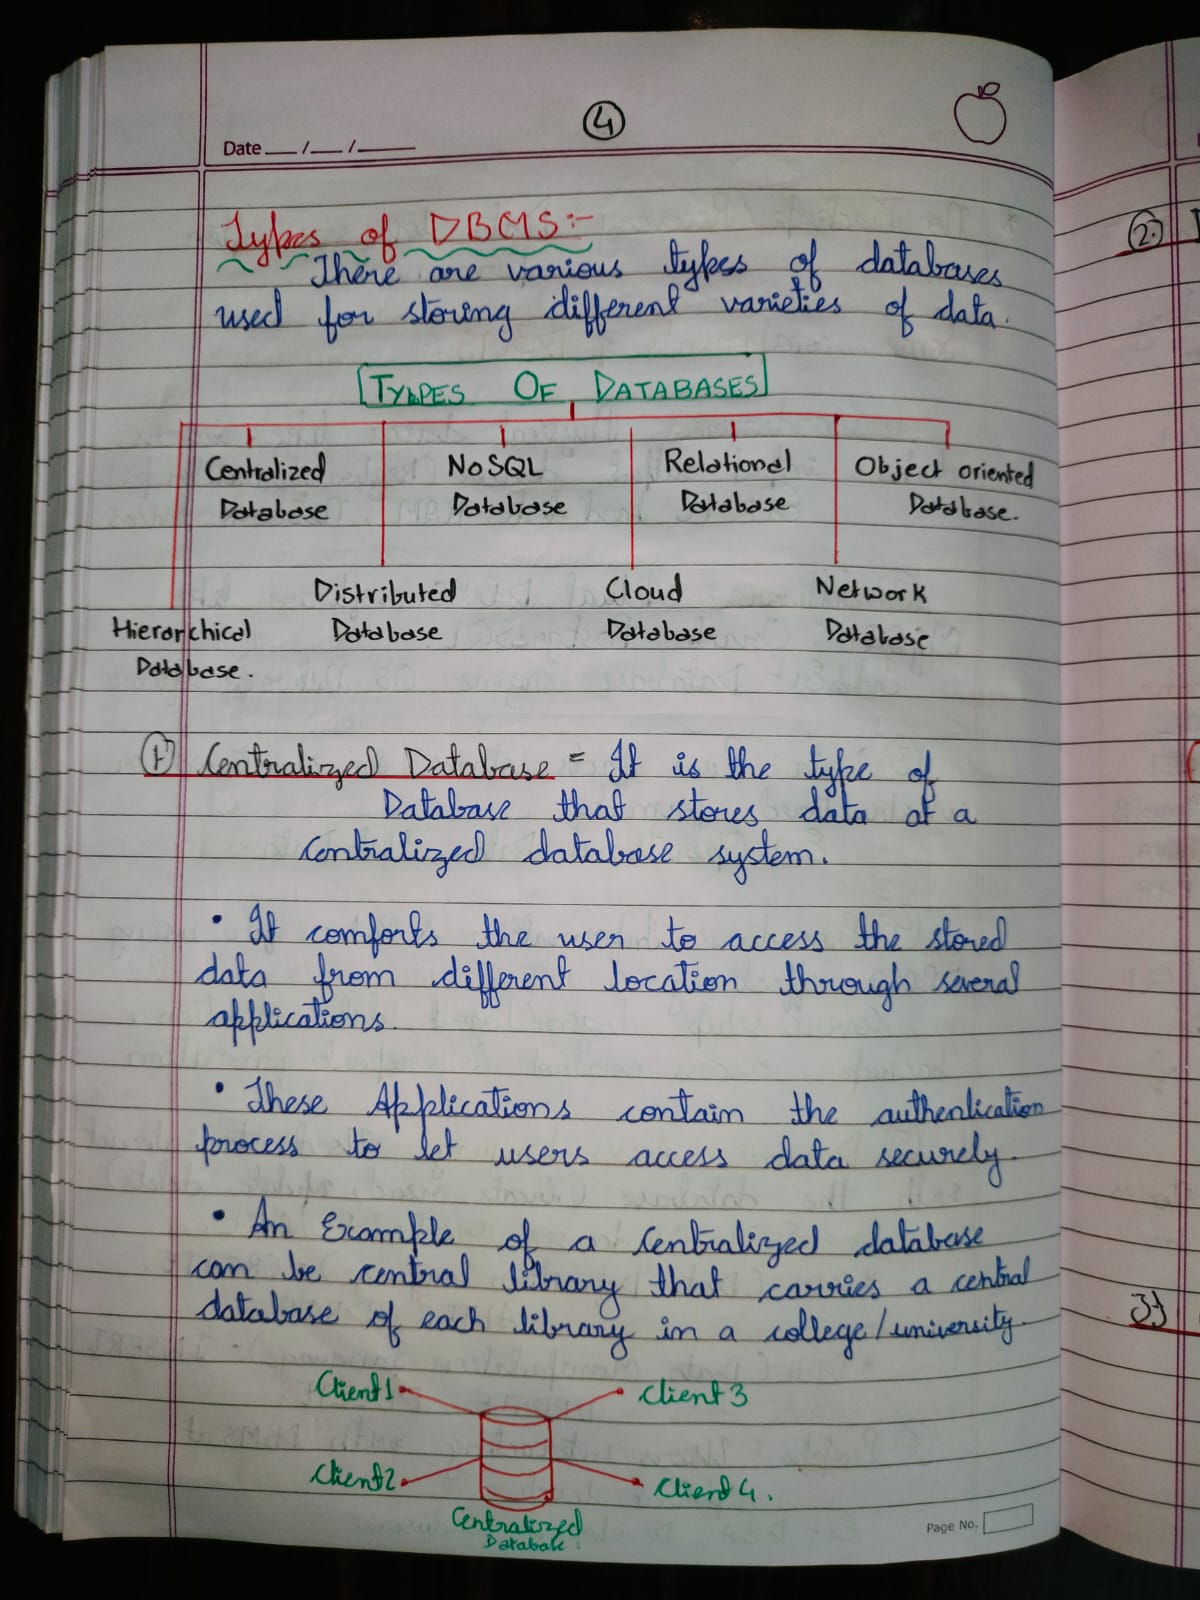 4
Date __/__/____
Types of DBMS:-
There are various types of databases
used for storing different varieties of data.
TYPES OF DATABASES
Centralized NoSQL Relational Object oriented
Database Database Database Database.
Distributed Cloud Network
Hierarchical Database Database Database
Database.
1) Centralized Database = It is the type of
Database that stores data at a
centralized database system.
• It comforts the user to access the stored
data from different location through several
applications.
• These Applications contain the authentication
process to let users access data securely.
• An Example of a Centralized database
can be central library that carries a central
database of each library in a college/university.
Client1 Client 3
Client2 Client 4.
Centralized
Database
Page No.
2.
3)